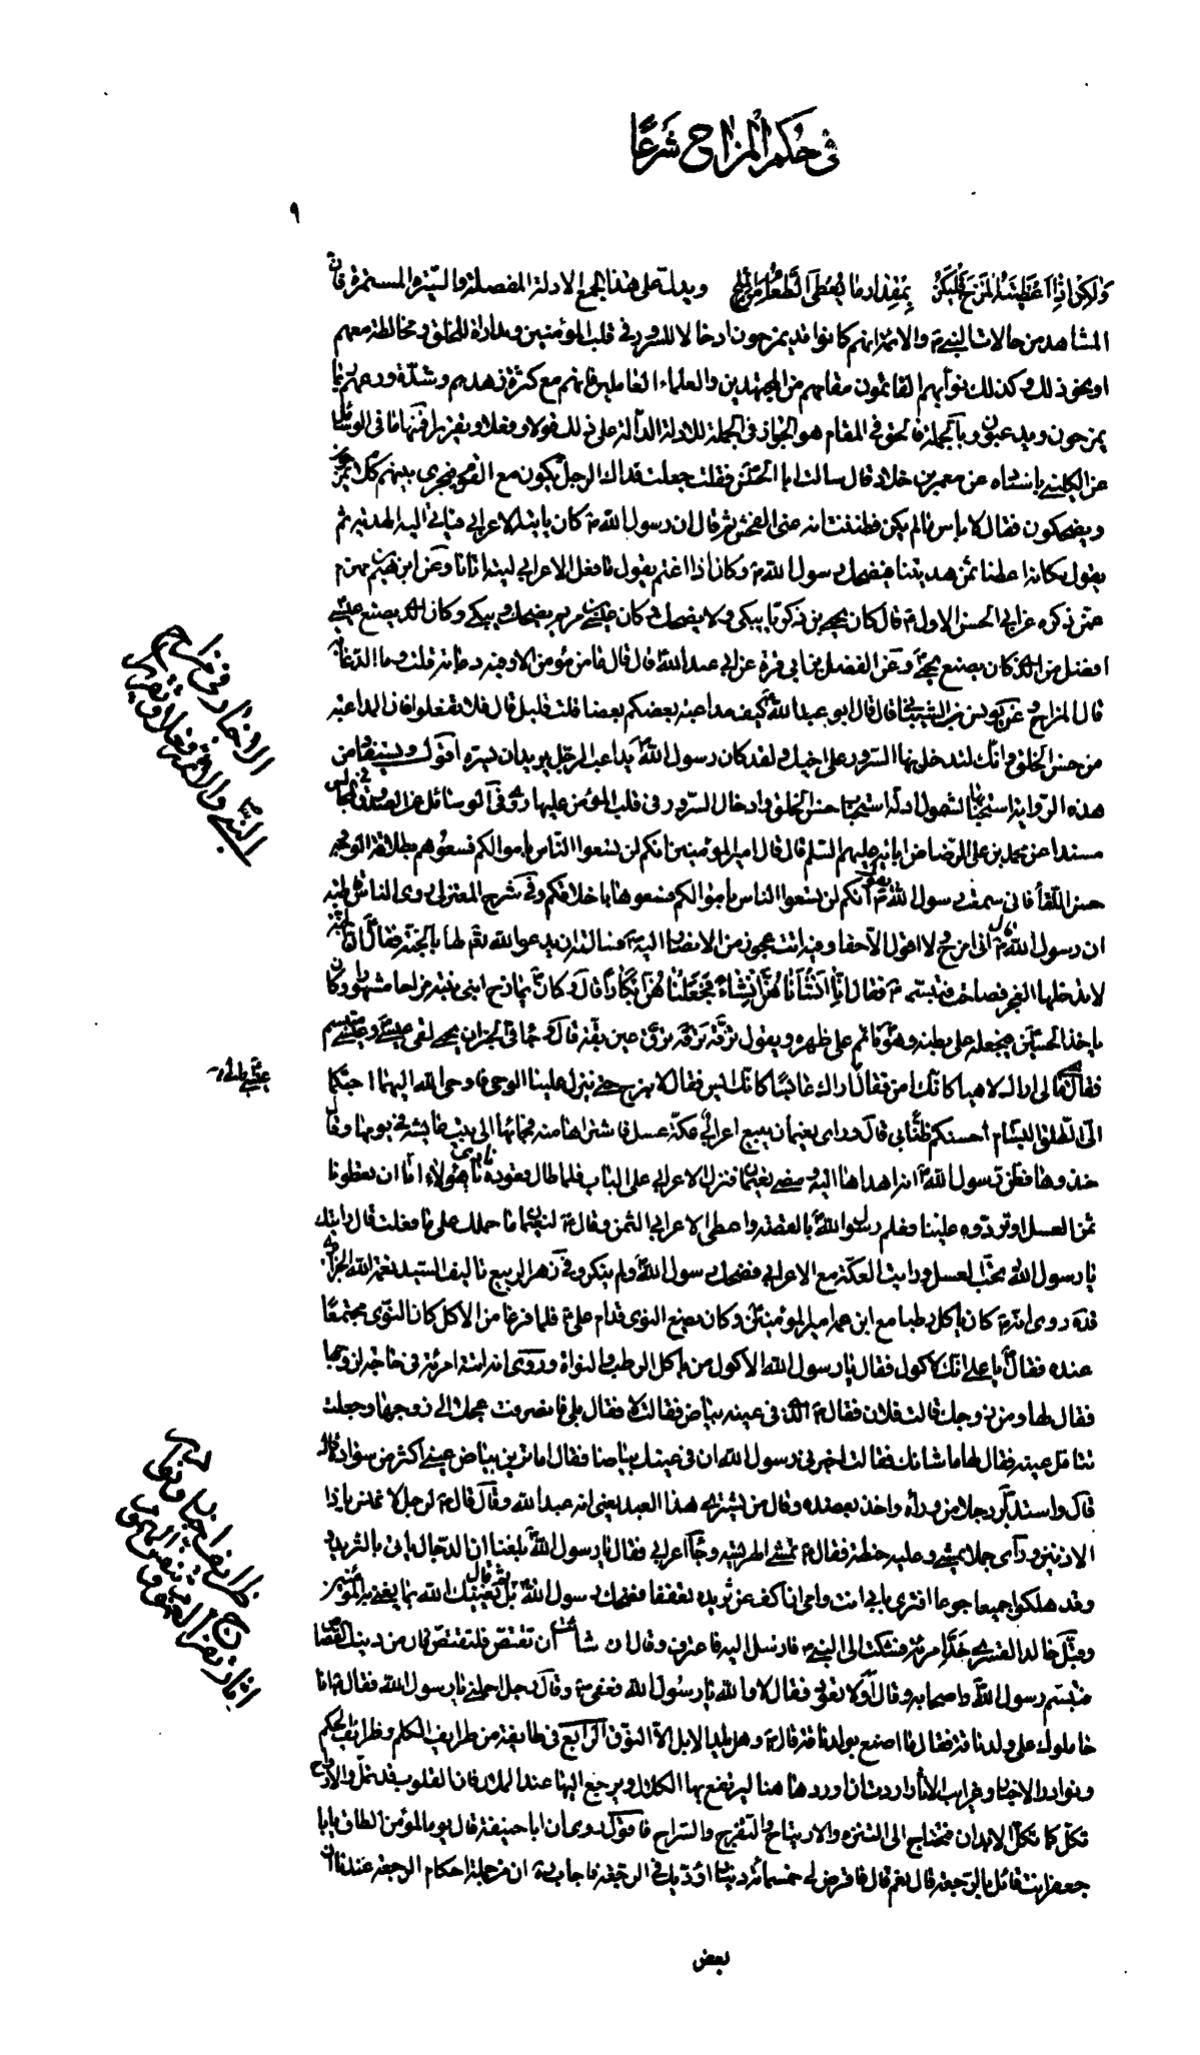 في حكم المزاح شرعا
٩
ولكن اذا اعطيته المزح فليكن بمقدار ما يعطى الطعام من الملح ويدل على هذا الجمع الادلة المفصلة والسيرة المستمرة فان
المشاهد من حالات النبي ص والائمة انهم كانوا قد يمزحون ادخالا للسرور في قلب المؤمنين ومداراة للخلق ومخالطة معهم
او نحو ذلك وكذلك نوابهم القائمون مقامهم من المجتهدين والعلماء العاملين فانهم مع كثرة زهدهم وشدة ورعهم ربما
يمزحون ويداعبون وبالجملة فالحق في المقام هو الجواز في الجملة للادلة الدالة على ذلك قولا وفعلا وتقريرا فمنها ما في الوسائل
عن الكليني باسناده عن معمر بن خلاد قال سالت ابا الحسن فقلت جعلت فداك الرجل يكون مع القوم فيجري بينهم كلام يمزحون
ويضحكون فقال لا باس ما لم يكن فظننت انه عنى الفحش ثم قال ان رسول الله ص كان ياتيه الاعرابي فياتي اليه الهدية ثم
يقول مكانه اعطنا ثمن هديتنا فيضحك رسول الله ص وكان اذا اغتم يقول ما فعل الاعرابي ليته اتانا وعن ابراهيم بن مهزم
عمن ذكره عن ابي الحسن الاول ع قال كان يحيى بن زكريا يبكي ولا يضحك وكان عيسى بن مريم يضحك ويبكي وكان الذي يصنع عيسى
افضل من الذي كان يصنع يحيى وعن الفضل بن ابي قرة عن ابي عبد الله قال قال ما من مؤمن الا وفيه دعابة قلت وما الدعابة
قال المزاح وعن يونس بن الشيباني قال قال ابو عبد الله كيف مداعبة بعضكم بعضا قلت قليل قال فلا تفعلوا فان المداعبة
من حسن الخلق وانك لتدخل بها السرور على اخيك ولقد كان رسول الله يداعب الرجل يريد ان يسره اقول ويستفاد من
هذه الرواية استحبابا لشمول ادلة استحباب حسن الخلق وادخال السرور في قلب المؤمن عليها وفي الوسائل عن الصدوق في المجالس
مسندا عن محمد بن علي الرضا عن ابائه عليهم السلم قال قال امير المؤمنين انكم لن تسعوا الناس باموالكم فسعوهم بطلاقة الوجه
حسن اللقاء فاني سمعت رسول الله ص يقول انكم لن تسعوا الناس باموالكم فسعوهم باخلاقكم وفي شرح المعتزلي روى الناس قاطبة
ان رسول الله ص قال اني امزح ولا اقول الا حقا وفيه اتت عجوز من الانصار اليه ص فسالته ان يدعو الله تعم لها بالجنة فقال ان الجنة
لا تدخلها العجز فصاحت فتبسم ص فقال انا انشاناهن انشاء فجعلناهن ابكارا قال وكان يمازح ابني بنته مزاحا مشهورا وكان
ياخذ الحسين فيجعله على بطنه وهو قائم على ظهره ويقول ترقه ترقه ترق عين بقة قال وحما في الخبر ان يحيى لقى عيسى وعيسى متبسم
فقال ما لي اراك لاهيا كانك امن فقال اراك عابسا كانك ايس فقال لا نبرح حتى ينزل علينا الوحي فاوحى الله اليهما احبكما
الى الطلق البسام احسنكم ظنا بي قال وراى نعيمان يبيع اعرابي عكة عسل فاشتراها منه فجاء بها الى بيت عايشة في يومها وقال
خذوها فظن رسول الله انه اهداها اليه ومضى نعيمان فنزل الاعرابي على الباب فلما طال قعوده نادى يا هؤلاء اما ان تعطونا
ثمن العسل او تردوه علينا فعلم رسول الله بالقصة واعطى الاعرابي الثمن وقال ص لنعيمان ما حملك على ما فعلت قال رايتك
يا رسول الله تحب العسل ورايت العكة مع الاعرابي فضحك رسول الله ولم ينكر وفي زهر الربيع تاليف السيد نعمة الله الجزائري
قده روى انه ص كان ياكل رطبا مع ابن عمه امير المؤمنين وكان يضع النوى قدام علي ع فلما فرغا من الاكل كان النوى مجتمعا
عنده فقال يا علي انك لاكول فقال يا رسول الله الاكول من ياكل الرطب والنواة وروى انه اتته امرئة في حاجة لزوجها
فقال لها ومن زوجك قالت فلان فقال ص الذي في عينه بياض فقالت لا فقال بلى فانصرفت عجلا الى زوجها وجعلت
تتامل عينيه فقال لها ما شانك فقالت اخبرني رسول الله ان في عينك بياضا فقال اما ترين بياض عيني اكثر من سوادها
قال واستدبر رجلا من ورائه واخذ بعضده وقال من يشتري هذا العبد يعني انه عبد الله وقال قال ص لرجل لا تنس يا ذا
الاذنين وراى جملا يمشي وعليه حنطة فقال ص تمشي الهريسة وجاء اعرابي فقال يا رسول الله بلغنا ان الدجال ياتي بالثريد
وقد هلكوا جميعا جوعا افترى بابي انت وامي ان اكف عن ثريده تعففا فضحك رسول الله ثم قال بل يغنيك الله بما يغني به المؤمنين
وقبل خالد القسري خد امرئة فشكت الى النبي ص فارسل اليه فاعترف وقال ان شائت ان تقتص فلتقتص فان من دينك القصاص
فتبسم رسول الله واصحابه وقال او لا تعود فقال لا والله يا رسول الله فعفى عنه وقال رجل احملني يا رسول الله فقال ص انا
حاملوك على ولد ناقة فقال ما اصنع بولد ناقة قال ص وهل يلد الابل الا النوق الرابع في طايفة من طرايف الكلم وظرايف الحكم
ونوادر الاخبار وغرايب الاثار اردت ان اوردها هنا ليرتفع بها الكلال ويرجع اليها عند الملال فان القلوب قد تمل والارواح
تكل كما تكل الابدان فتحتاج الى التنزه والارتياح والتفرج والسراح فاقول روى ان ابا حنيفة قال يوما لمؤمن الطاق يا ابا
جعفر انت قائل بالرجعة قال نعم قال فاقرضني خمسمائة دينار اؤديك في الرجعة فاجابه ان من جملة احكام الرجعة عندنا ان
الاخبار في مزاح
النبي والائمة فعلا وتقريرا
بعض